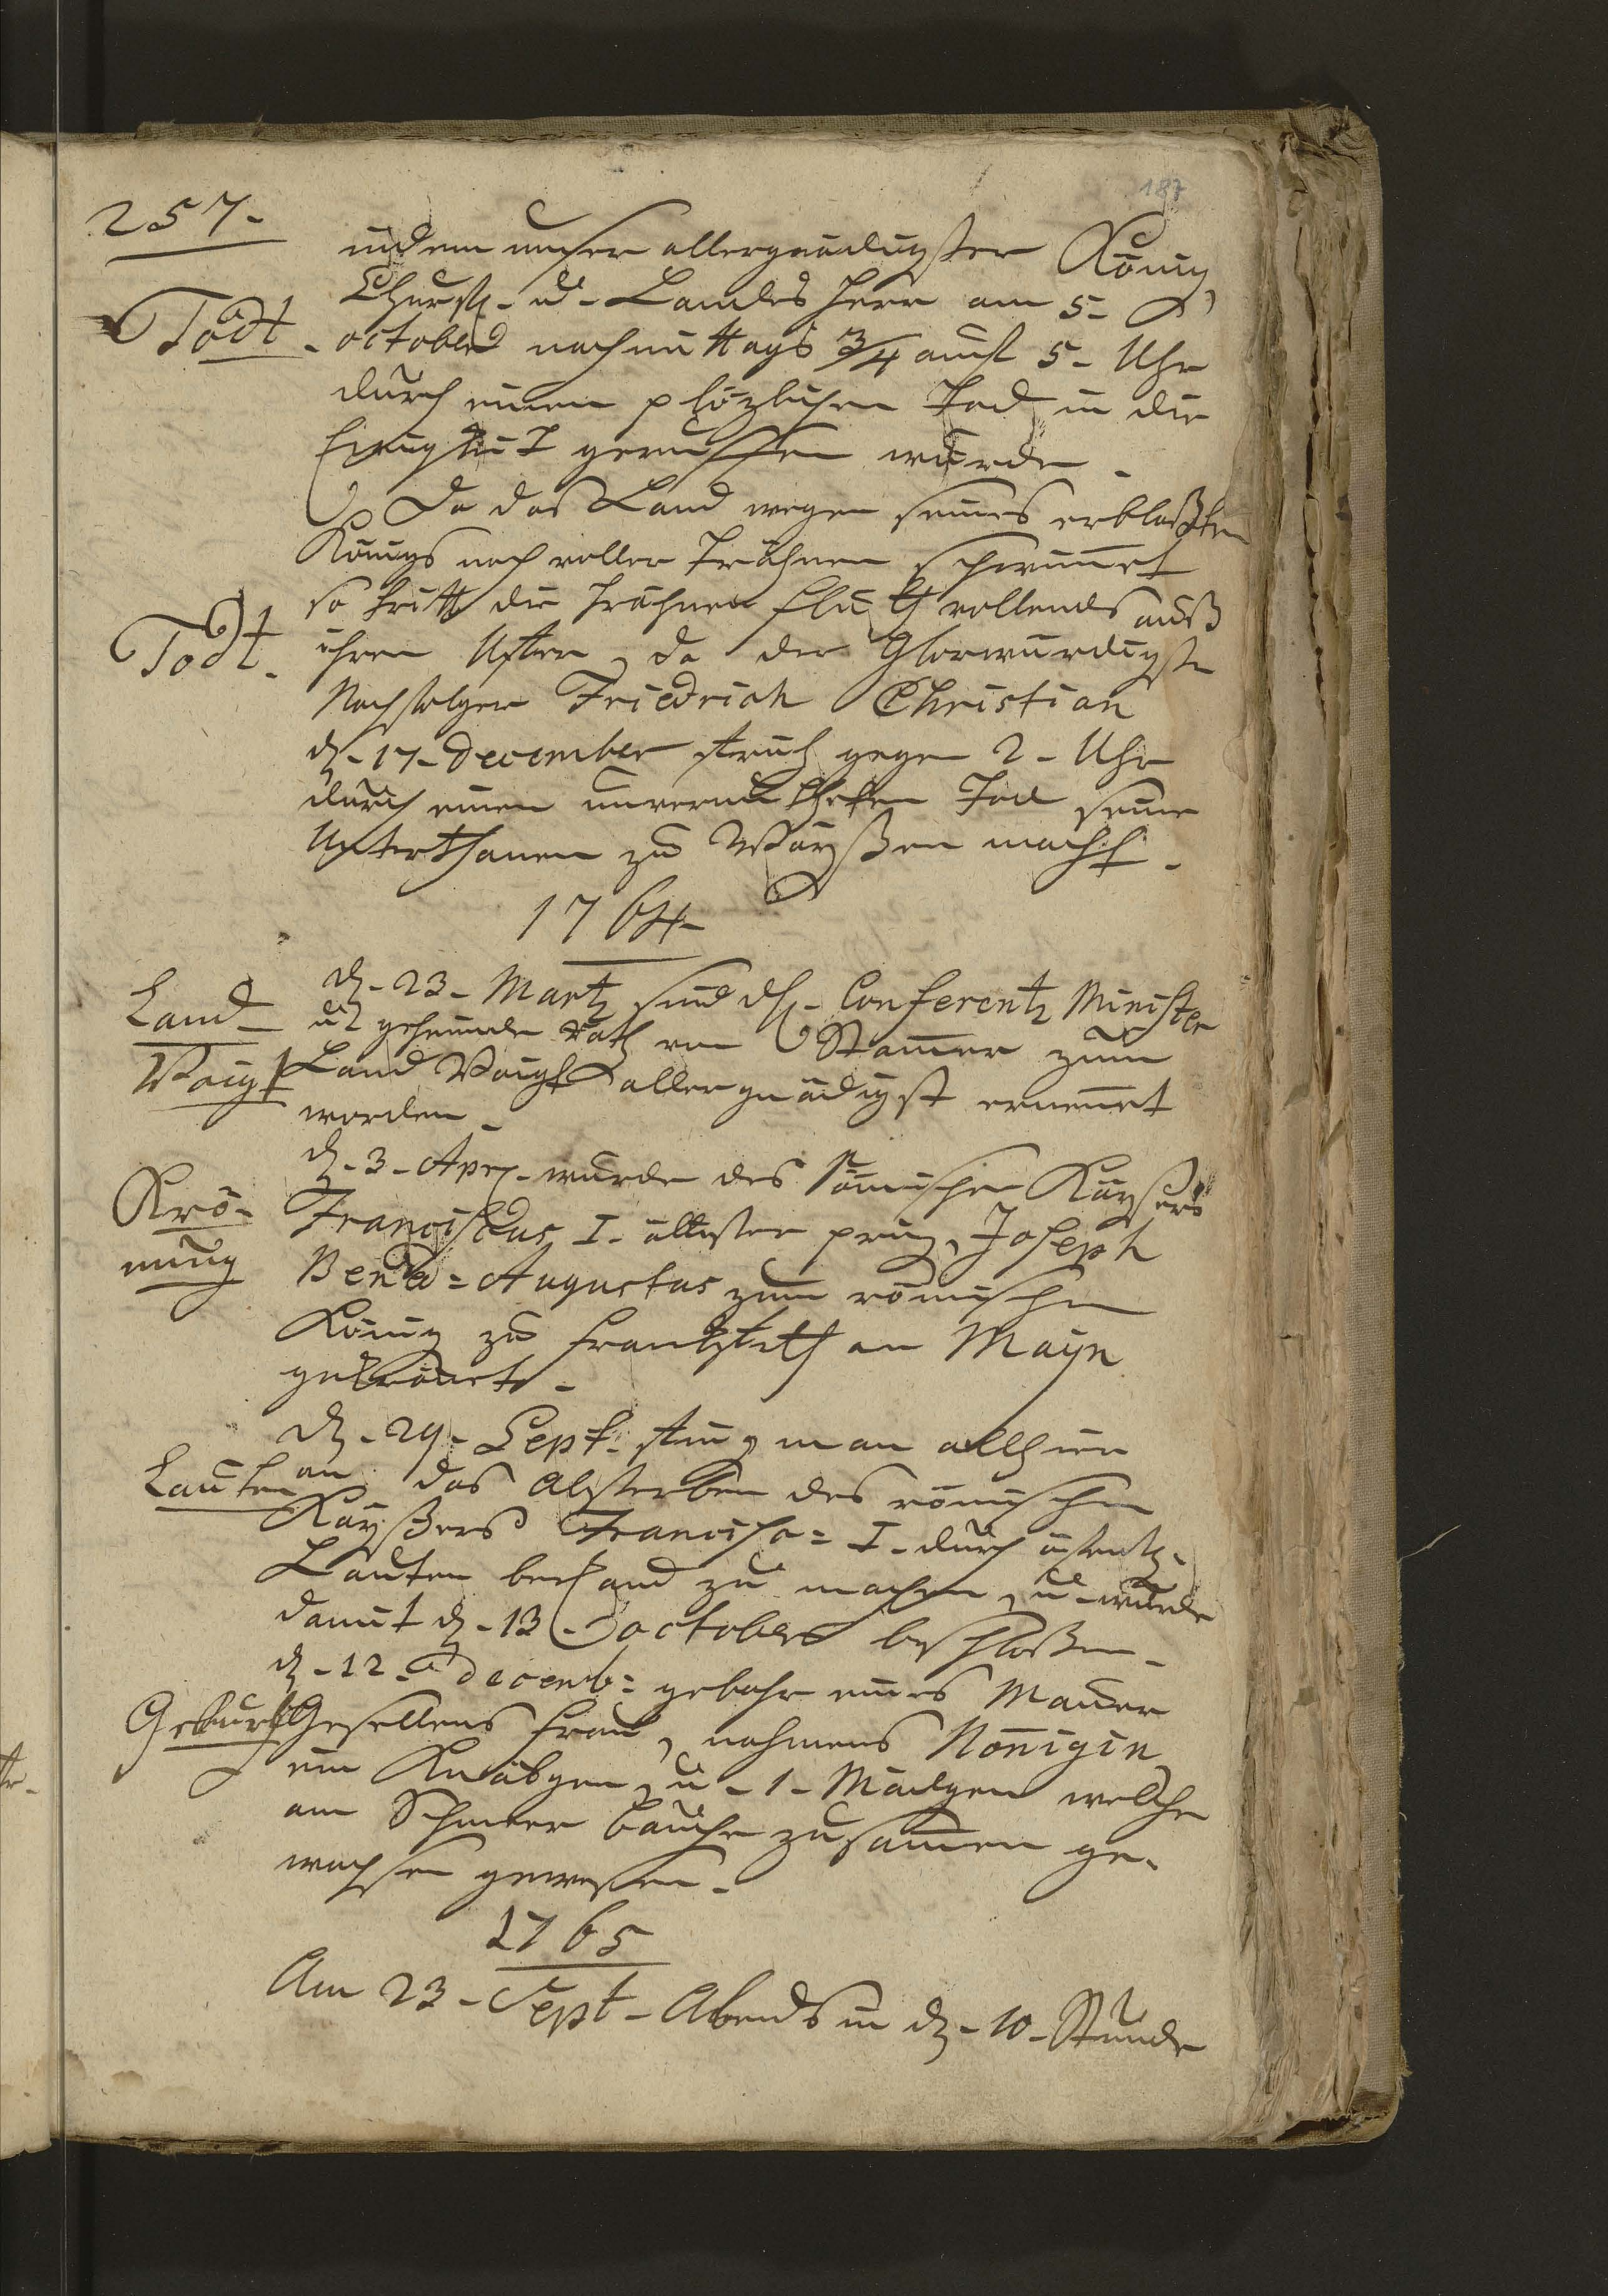 187
257.
indem unser allergnädigster König,
Churf. u. Landes Herr am 5.
Todt. october nachmittags 3/4 auf 5. Uhr
durch einen plözlichen Tod in die
Ewigkeit geruffen wurde.
Da das Land wegen seines erblaßten
Königs noch voller Trähnen schwimet
so tritt die Trähnen Fluth vollends auß
Todt. ihren Ufern, da der Glorwürdigste
Nachfolger Friedrich Christian
d. 17. December fruh gegen 2. Uhr
durch einen unvermutheten Tod seine
Unterthanen zu Wayßen macht.
1764.
d. 23. Martz sind dH. Conferentz Minister
Land u. geheimde Rath von Stamer zum
Voigt Land Voigt allergnädigst ernenet
worden.
d. 3. Apr. wurde des Römischen Kayßers
Krö- Franciscus I. älltester prinz, Joseph
nung Bened= Augustus zum römischen
König zu Franckfurth am Mayn
gekrönet.
d. 29. Sept. fing man allhier
Lauten an das Absterben des römischen
Kayßers Francisc= I. durch
Lauten bekand zu machen, u. wurde
damit d. 13. october beschloßen.
d. 12. Decemb= gebahr eines Mauer
Geburt Gesellens Frau, nahmens Nönigin
ein Knäbgen, u. 1. Mädgen welche
am Schmeer Bauche zusamen ge-
wachsen gewesen.
1765
Am 23. Sept. Abends in d. 10. Stunde